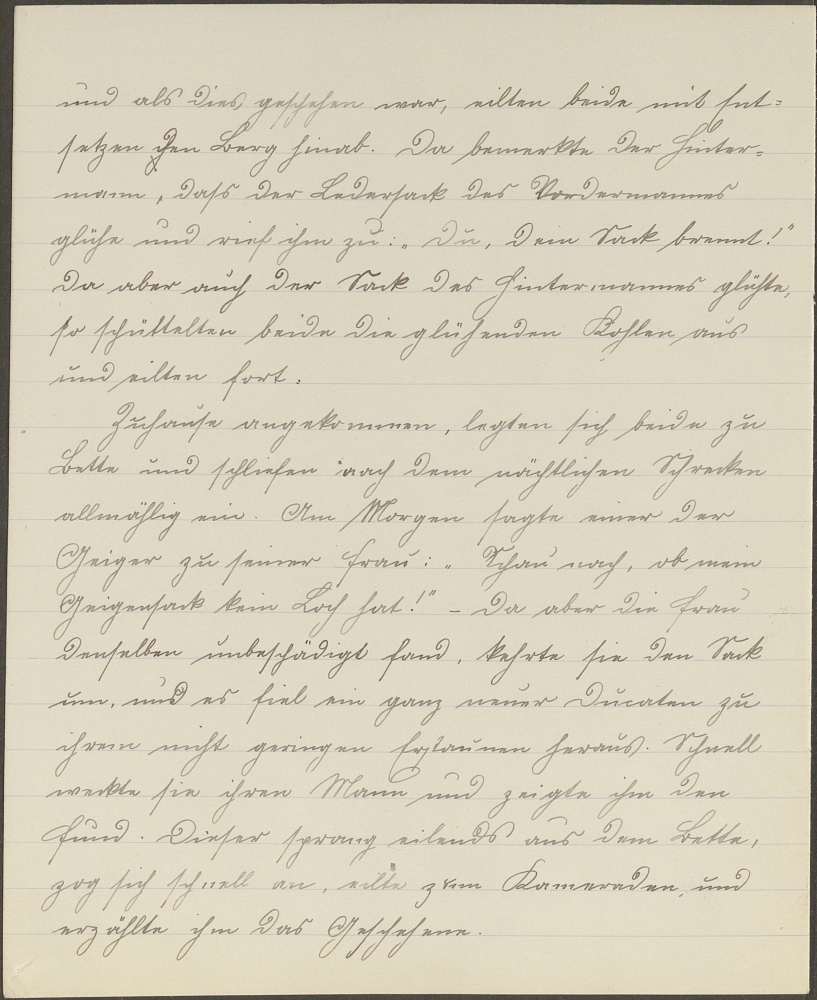 und als dies geschehen war, eilten beide mit Ent=
setzen den Berg hinab. Da bemerkte der Hinter=
mann, dass der Ledersack des Vordermannes
glühe und rief ihm zu: „Du, dein Sack brennt!"
Da aber auch der Sack des Hintermannes glühte,
so schüttelten beide die glühenden Kohlen aus
und eilten fort.
Zuhause angekommen, legten sich beide zu
Bette und schliefen nach dem nächtlichen Schrecken
allmählig ein. Am Morgen sagte einer der
Geiger zu seiner Frau: „Schau nach, ob mein
Geigensack kein Loch hat!" – Da aber die Frau
denselben unbeschädigt fand, kehrte sie den Sack
um, und es fiel ein ganz neuer Ducaten zu
ihrem nicht geringen Erstaunen heraus. Schnell
weckte sie ihren Mann und zeigte ihm den
Fund. Dieser sprang eilends aus dem Bette,
zog sich schnell an, eilte zum Kameraden, und
erzählte ihm das Geschehene.